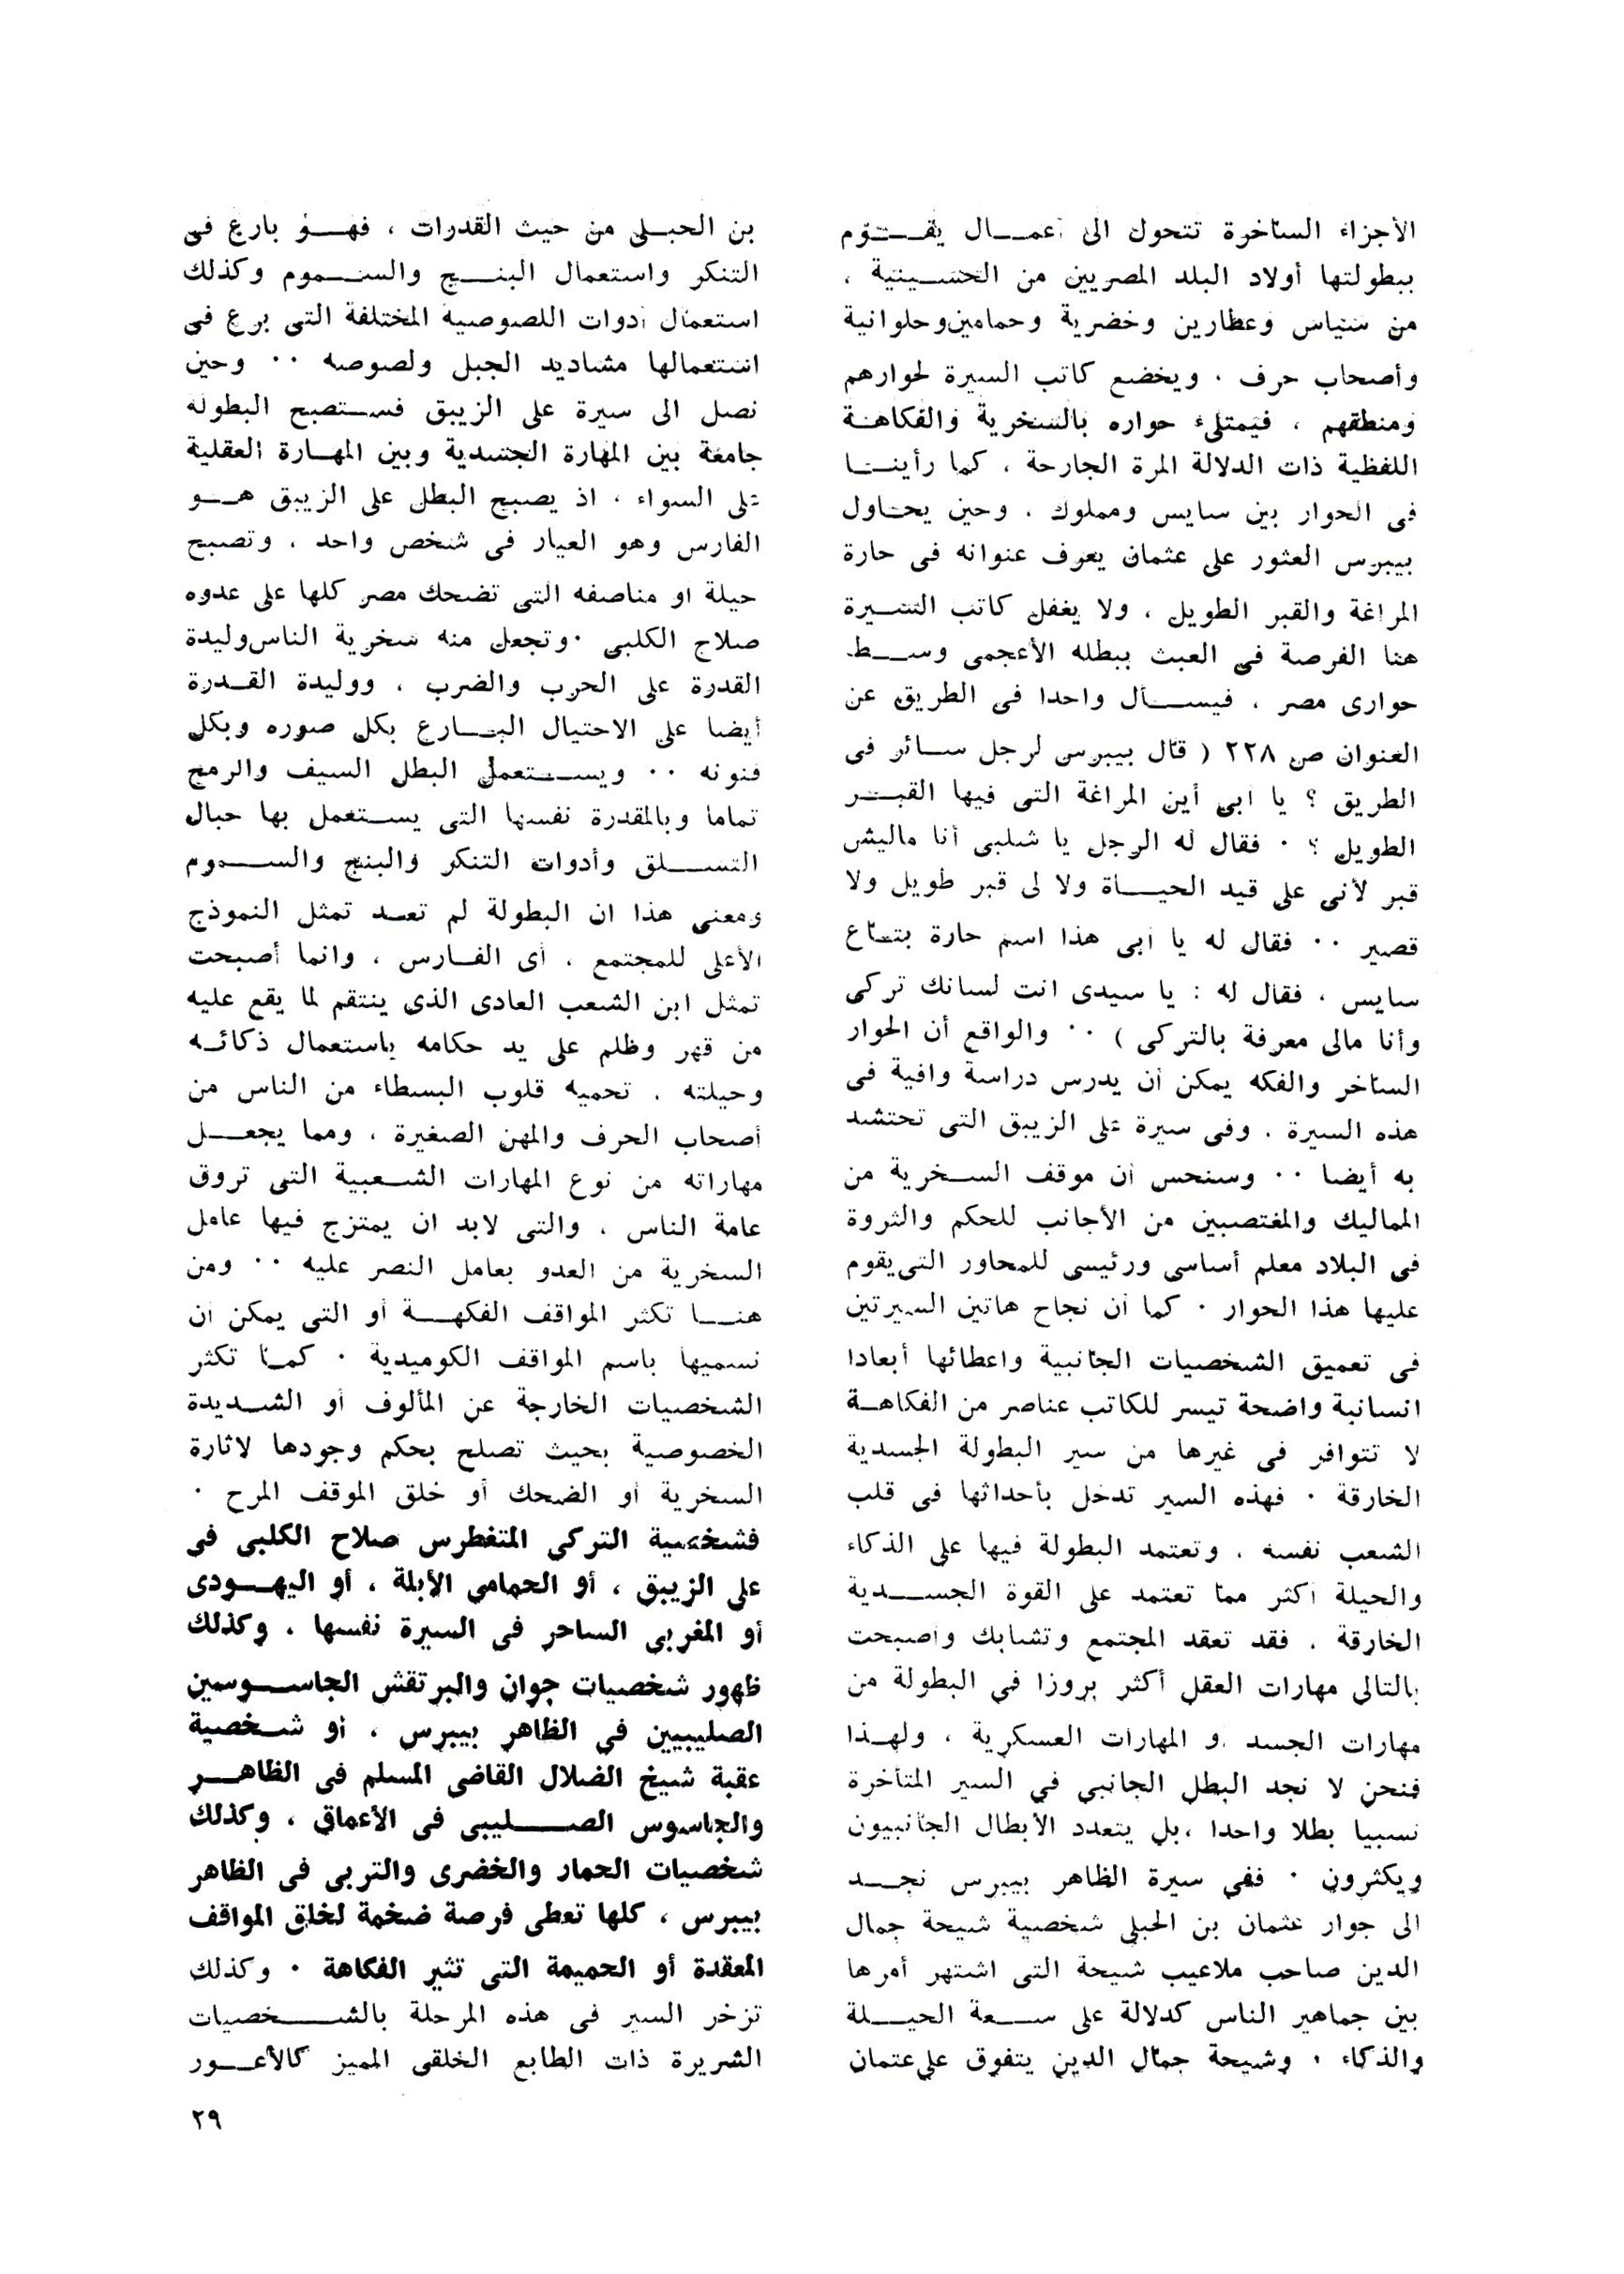 الأجزاء الساخرة تتحول الى أعمال يقوم
ببطولتها أولاد البلد المصريين من الحسينية ،
من سياس وعطارين وخضرية وحمامين وحلوانية
وأصحاب حرف . ويخضع كاتب السيرة لحوارهم
ومنطقهم ، فيمتلىء حواره بالسخرية والفكاهة
اللفظية ذات الدلالة المرة الجارحة ، كما رأينا
فى الحوار بين سايس ومملوك . وحين يحاول
بيبرس العثور على عثمان يعرف عنوانه فى حارة
المراغة والقبر الطويل ، ولا يغفل كاتب السيرة
هنا الفرصة فى العبث ببطله الأعجمى وسط
حوارى مصر ، فيسأل واحدا فى الطريق عن
العنوان ص ٢٢٨ ( قال بيبرس لرجل سائر فى
الطريق ؟ يا ابى أين المراغة التى فيها القبر
الطويل ؟ . فقال له الرجل يا شلبى أنا ماليش
قبر لأنى على قيد الحياة ولا لى قبر طويل ولا
قصير .. فقال له يا ابى هذا اسم حارة بتاع
سايس ، فقال له : يا سيدى انت لسانك تركى
وأنا مالى معرفة بالتركى ) .. والواقع أن الحوار
الساخر والفكه يمكن أن يدرس دراسة وافية فى
هذه السيرة . وفى سيرة على الزيبق التى تحتشد
به أيضا .. وسنحس ان موقف السخرية من
المماليك والمغتصبين من الأجانب للحكم والثروة
فى البلاد معلم أساسى ورئيسى للمحاور التى يقوم
عليها هذا الحوار . كما أن نجاح هاتين السيرتين
فى تعميق الشخصيات الجانبية واعطائها أبعادا
انسانية واضحة تيسر للكاتب عناصر من الفكاهة
لا تتوافر فى غيرها من سير البطولة الجسدية
الخارقة . فهذه السير تدخل بأحداثها فى قلب
الشعب نفسه . وتعتمد البطولة فيها على الذكاء
والحيلة أكثر مما تعتمد على القوة الجسدية
الخارقة . فقد تعقد المجتمع وتشابك وأصبحت
بالتالى مهارات العقل أكثر بروزا فى البطولة من
مهارات الجسد و المهارات العسكرية ، ولهذا
فنحن لا نجد البطل الجانبى فى السير المتأخرة
نسبيا بطلا واحدا ، بل يتعدد الأبطال الجانبيون
ويكثرون . ففى سيرة الظاهر بيبرس نجد
الى جوار عثمان بن الحبلى شخصية شيحة جمال
الدين صاحب ملاعيب شيحة التى اشتهر أمرها
بين جماهير الناس كدلالة على سعة الحيلة
والذكاء . وشيحة جمال الدين يتفوق على عتمان
بن الحبلى من حيث القدرات ، فهو بارع فى
التنكر واستعمال البنج والسموم وكذلك
استعمال أدوات اللصوصية المختلفة التى برع فى
استعمالها مشاديد الجبل ولصوصه .. وحين
نصل الى سيرة على الزيبق فستصبح البطولة
جامعة بين المهارة الجسدية وبين المهارة العقلية
على السواء . اذ يصبح البطل على الزيبق هو
الفارس وهو العيار فى شخص واحد . وتصبح
حيلة او مناصفه التى تضحك مصر كلها على عدوه
صلاح الكلبى . وتجعل منه سخرية الناس وليدة
القدرة على الحرب والضرب ، ووليدة القدرة
أيضا على الاحتيال البارع بكل صوره وبكل
فنونه .. ويستعمل البطل السيف والرمح
تماما وبالمقدرة نفسها التى يستعمل بها حبال
التسلق وأدوات التنكر والبنج والسموم
ومعنى هذا ان البطولة لم تعد تمثل النموذج
الأعلى للمجتمع . أى الفارس ، وانما أصبحت
تمثل ابن الشعب العادى الذى ينتقم لما يقع عليه
من قهر وظلم على يد حكامه باستعمال ذكائه
وحيلته . تحميه قلوب البسطاء من الناس من
أصحاب الحرف والمهن الصغيرة ، ومما يجعل
مهاراته من نوع المهارات الشعبية التى تروق
عامة الناس . والتى لابد ان يمتزج فيها عامل
السخرية من العدو بعامل النصر عليه .. ومن
هنا تكثر المواقف الفكهة أو التى يمكن ان
نسميها باسم المواقف الكوميدية . كما تكثر
الشخصيات الخارجة عن المألوف أو الشديدة
الخصوصية بحيث تصلح بحكم وجودها لاثارة
السخرية أو الضحك أو خلق الموقف المرح .
فشخصية التركى المتغطرس صلاح الكلبى فى
على الزيبق ، أو الحمامى الأبلة ، أو اليهودى
أو المغربى الساحر فى السيرة نفسها . وكذلك
ظهور شخصيات جوان والبرتقش الجاسوسين
الصليبيين فى الظاهر بيبرس ، أو شخصية
عقبة شيخ الضلال القاضى المسلم فى الظاهر
والجاسوس الصليبى فى الأعماق ، وكذلك
شخصيات الحمار والخضرى والتربى فى الظاهر
بيبرس ، كلها تعطى فرصة ضخمة لخلق المواقف
المعقدة أو الحميمة التى تثير الفكاهة . وكذلك
تزخر السير فى هذه المرحلة بالشخصيات
الشريرة ذات الطابع الخلقى المميز كالأعور
٢٩